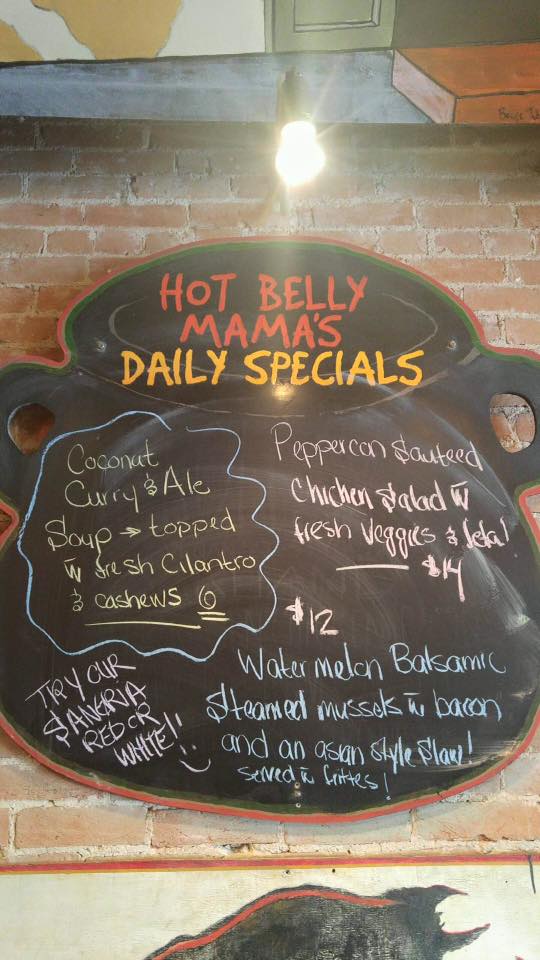 HOT BELLY
MAMA'S
DAILY SPECIALS
Coconut
Curry & Ale
Soup → topped
w fresh Cilantro
& cashews 6
Peppercon Sauteed
Chicken Salad w
fresh Veggies & feta!
$14
$12
Watermelon Balsamic
Steamed mussels w bacon
and an asian style slaw!
served w frittes!
TRY OUR
SANGRIA
RED OR
WHITE!!